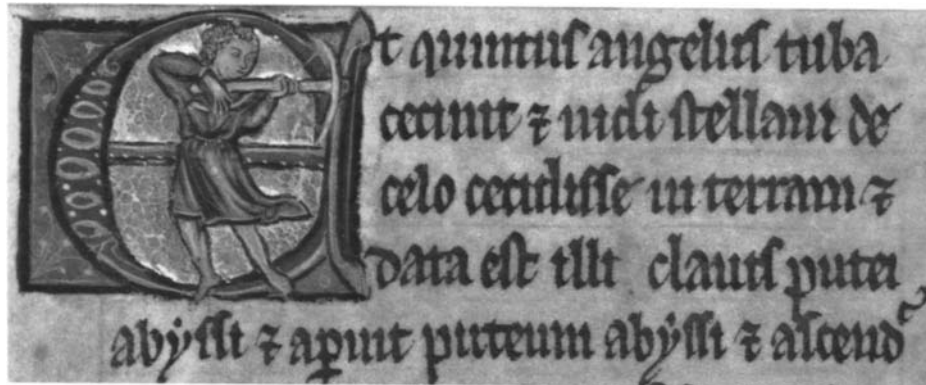 Et quintus angelus tuba
cecinit ⁊ uidi stellam de
celo cecidisse in terram ⁊
data est illi clauis putei
abyssi ⁊ aperuit puteum abyssi ⁊ ascend͛